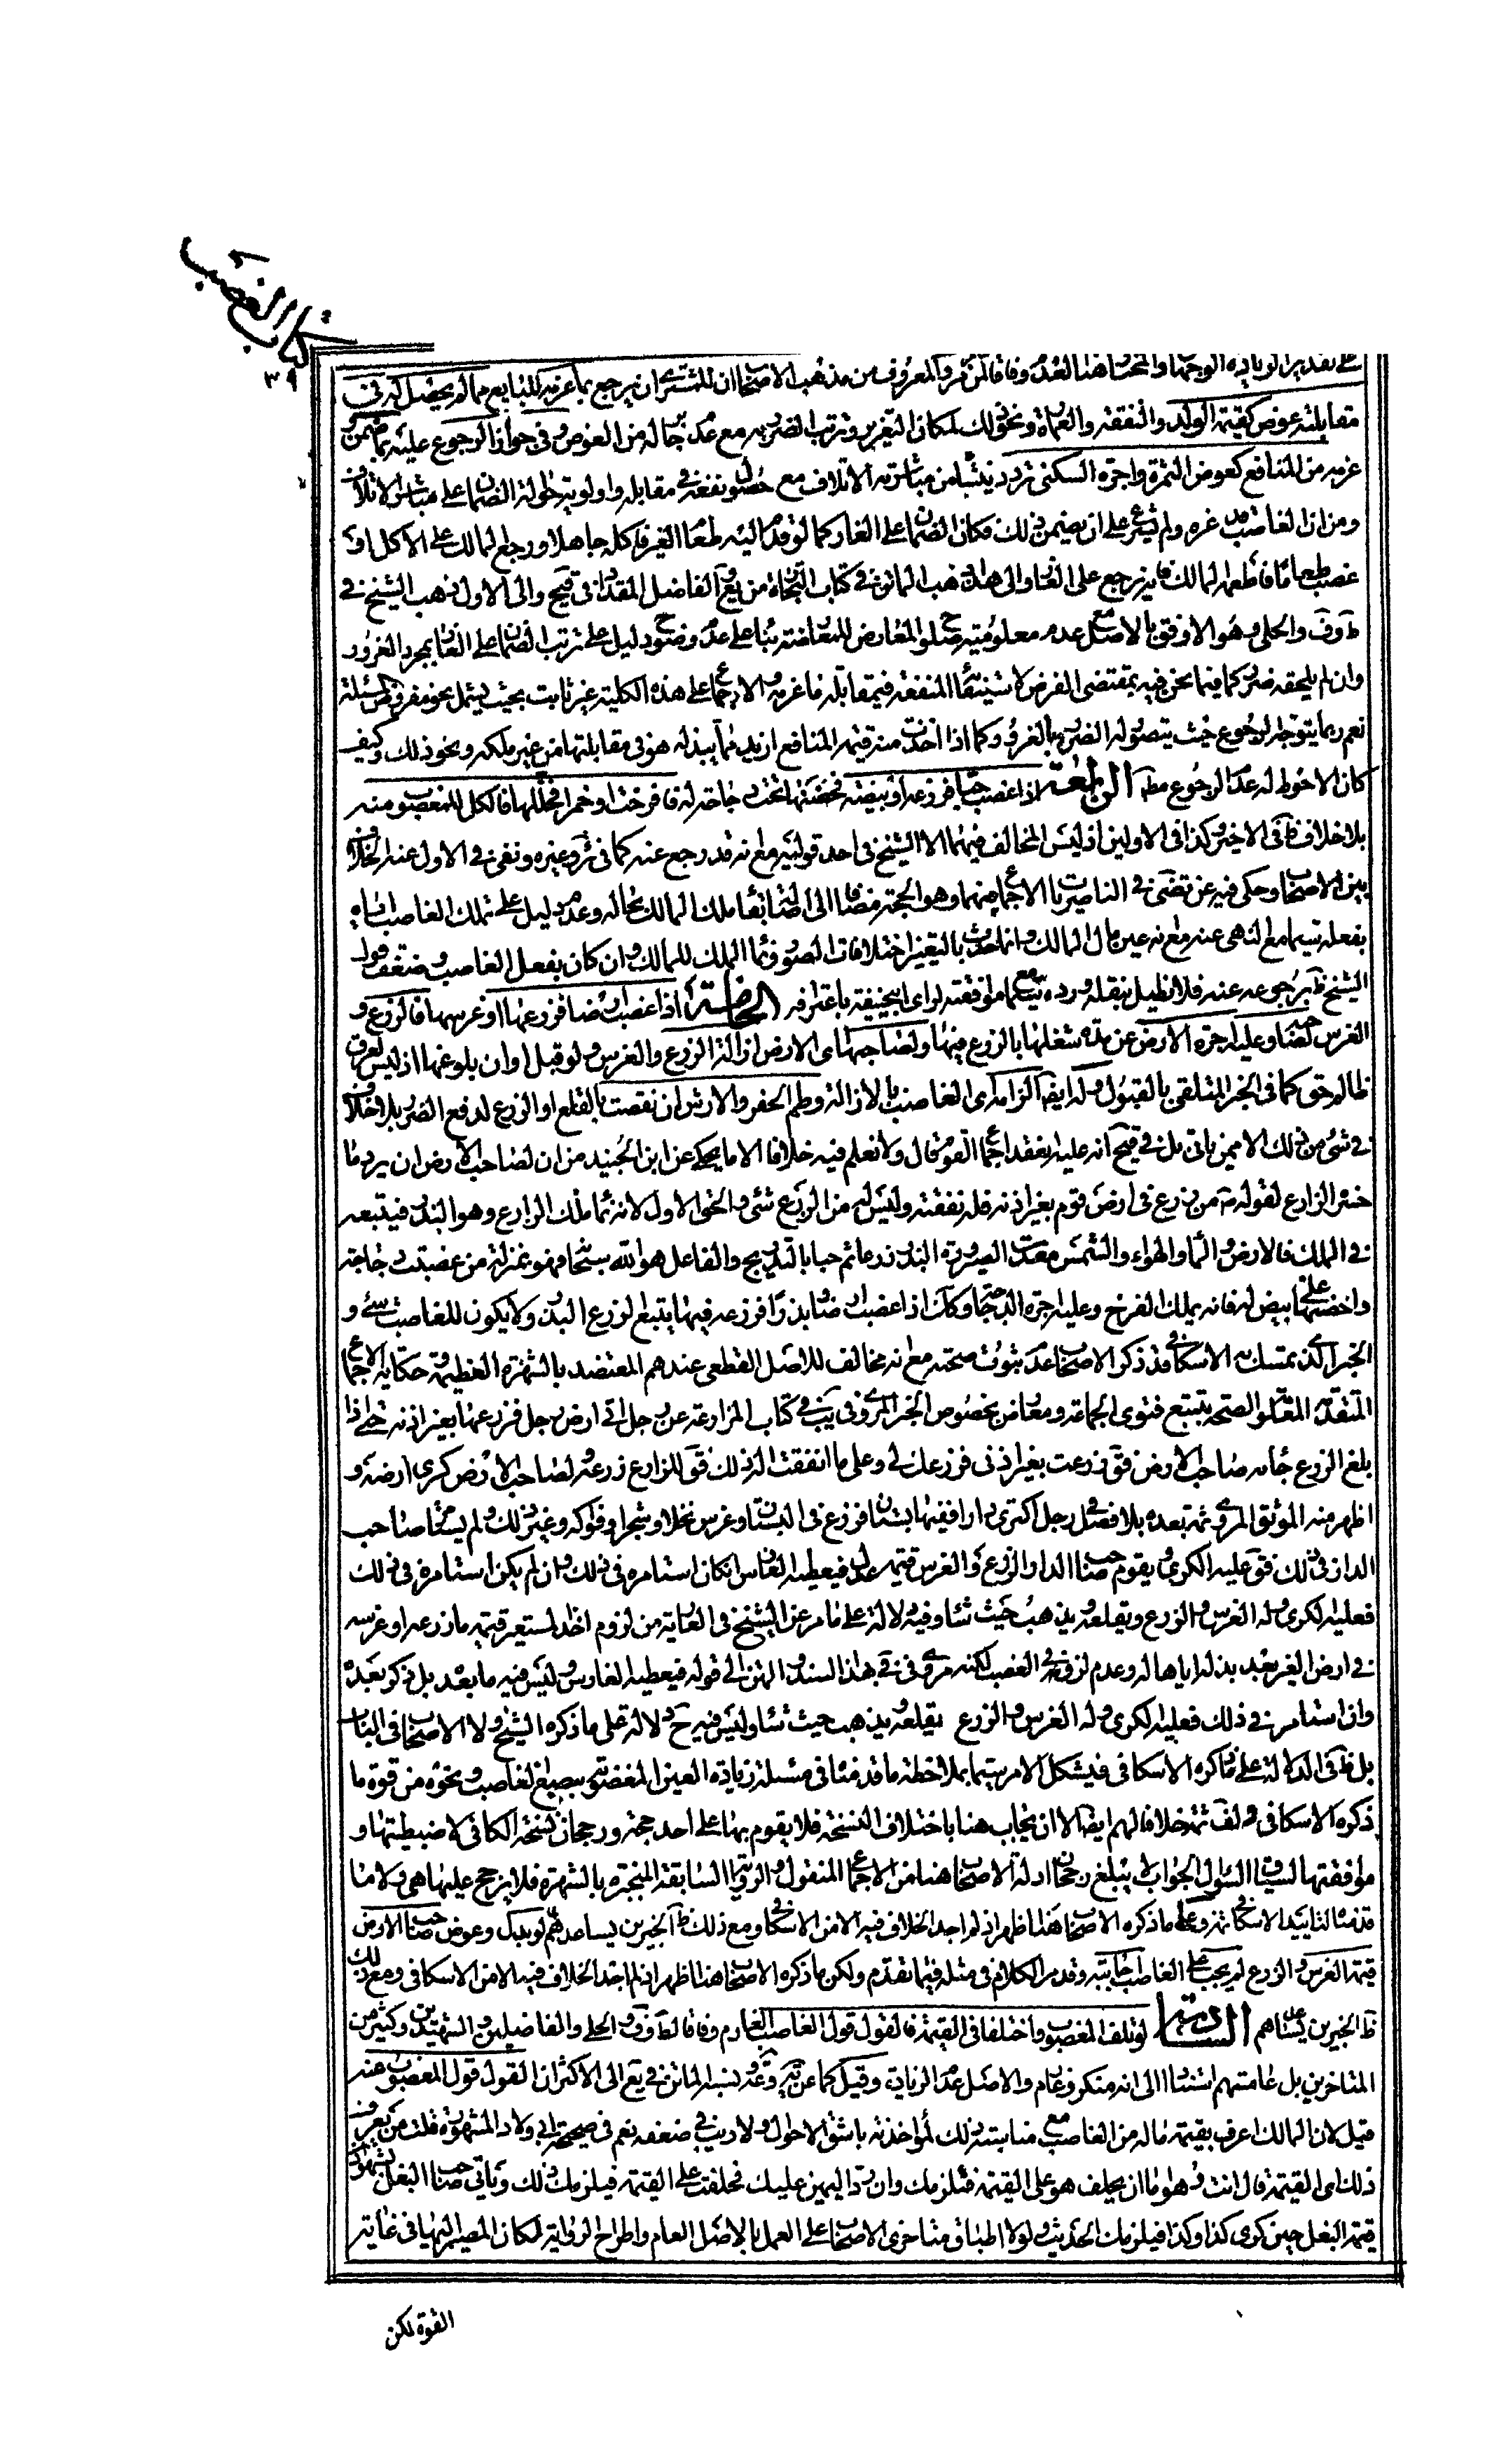 كتاب الغصب
٣٩
مقابلته عوض كقيمة الولد والنفقة والعمارة ونحو ذلك لمكان التغرير وترتب الضرر به مع عدم جابر له من العوض وفي جواز الرجوع عليه بما ضمن و
غرمه من المنافع كعوض الثمرة واجرة السكنى تردد ينشأ من مباشرته الاتلاف مع حصول نفعه في مقابله واولوية حوالة الضمان على مباشر الاتلاف
ومن ان الغاصب قد غره ولم يشرع على ان يضمن ذلك فكان الضمان على الغار كما لو قدم اليه طعام الغير فاكله جاهلا ورجع المالك على الاكل او
غصب طعاما فاطعمه المالك فانه يرجع على الغار والى هذا ذهب الماتن في كتاب التجارة من يع والفاضل المقداد في قيح والى الاول ذهب الشيخ في
ط وف والحلي وهو الاوفق بالاصل مع عدم معلومية صلوح المعارض للمعارضة بناء على عدم وضوح دليل على ترتب الضمان على الغار بمجرد الغرور
وان لم يلحقه ضرر كما فيما نحن فيه بمقتضى الفرض لاستيفاء المنفعة في مقابلة ما غرمه والاجماع على هذه الكلية غير ثابت بحيث يشمل نحو مفروض المسئلة
نعم ربما يتوجه الرجوع حيث يتصور له الضرر بالغرور كما اذا اخذت منه قيمة المنافع ازيد مما يبذله هو في مقابلتها من غير ملكه ونحو ذلك وكيف
كان الاحوط له عدم الرجوع مط الرابعة اذا غصب حبا فزرعه او بيضة فحضنها تحت دجاجة له فافرخت او خمرا فخللها فالكل للمغصوب منه
بلا خلاف ظ في الاخير وكذا في الاولين اذ ليس المخالف فيهما الا الشيخ في احد قوليه مع انه قد رجع عنه كما في س وغيره ونفى في الاول عنه الخلاف
بين الاصحاب وحكى فيه عن مرتضى في الناصريات الاجماع منهما وهو الحجة مضافا الى اصالة بقاء ملك المالك بحاله وعدم دليل على تملك الغاصب اياه
بفعله سيما مع النهي عنه مع انه عين مال المالك وانما حدث بالتغير اختلافات الصور ونماء الملك للمالك وان كان بفعل الغاصب وضعف قول
الشيخ ظ برجوعه عنه فلا نطيل بنقله ورده سيما مع موافقته لراي ابيحنيفة باعترافه الخامسة اذا غصب ارضا فزرعها او غرسها فالزرع و
الغرس لصاحبه وعليه اجرة الارض عن مدة شغلها بالزرع فيها ولصاحبها اي الارض ازالة الزرع والغرس ولو قبل اوان بلوغهما اذ ليس لعرق
ظالم حق كما في الخبر المتلقى بالقبول وله ايضا الزامه اي الغاصب بالازالة وطم الحفر والارش ان نقصت بالقلع او الزرع لدفع الضرر بلا خلاف
في شئ من ذلك الا ممن ياتي بل في قيح انه عليه انعقد اجماع القوم قال ولا نعلم فيه خلافا الا ما يحكى عن ابن الجنيد من ان لصاحب الارض ان يرد ما
خسر الزارع لقوله ص من زرع في ارض قوم بغير اذنه فله نفقته وليس له من الزرع شئ والحق الاول لانه نماء ملك الزارع وهو البذر فيتبعه
في الملك فالارض والماء والهواء والشمس معدات لصيرورة البذر زرعا ثم حبا بالتدريج والفاعل هو الله سبحانه فهو بمنزلة من غصب دجاجة
واحضنها على بيض له فانه يملك الفرخ وعليه اجرة الدجاجة وكذا اذا غصب ارضا وبذرا فزرعه فيها يتبع الزرع البذر ولا يكون للغاصب شئ و
الخبر الذي تمسك به الاسكافي قد ذكر الاصحاب عدم ثبوت صحته مع انه مخالف للاصل القطعي عندهم المعتضد بالشهرة العظيمة وحكاية الاجماع
المتقدمة المعلوم الصحة بتتبع فتوى الجماعة ومعارض بخصوص الخبر المروي في يب في كتاب المزارعة عن رجل اتى ارض رجل فزرعها بغير اذنه حتى اذا
بلغ الزرع جاء صاحب الارض فق زرعت بغير اذني فزرعك لي وعلى ما انفقت اله ذلك فق للزارع زرعه ولصاحب الارض كرى ارضه و
اظهر منه الموثق المروي ثمة بعده بلا فصل في رجل اكترى دارا فيها بستان فزرع في البستان وغرس نخلا وشجرا وفواكه وغير ذلك ولم يستامر صاحب
الدار في ذلك فق عليه الكرى ويقوم صاحب الدار الزرع والغرس قيمة عدل فيعطيه الغارس ان كان استامره في ذلك وان لم يكن استامره في ذلك
فعليه الكرى وله الغرس والزرع ويقلعه ويذهب حيث شاء وفيه دلالة على ما مر عن الشيخ في العارية من لزوم اخذ المستعير قيمة ما زرعه او غرسه
في ارض الغير بعد بذله اياها له وعدم لزومه في الغصب لكنه مروي في في بهذا السند والمتن الى قوله فيعطيه الغارس وليس فيه ما بعد بل ذكر بعده
وان استامره في ذلك فعليه الكرى وله الغرس والزرع يقلعه ويذهب حيث شاء وليس فيه ح دلالة على ما ذكره الشيخ ولا الاصحاب في الباب
بل ظ في الدلالة على ما ذكره الاسكافي فيشكل الامر سيما بملاحظة ما قدمناه في مسئلة زيادة العين المغصوبة بصبغ الغاصب ونحوه من قوة ما
ذكره الاسكافي ولف ثمة خلافا لهم ايضا الا ان يجاب هنا باختلاف النسخة فلا يقوم بها على احد حجة ورجحان نسخة الكافي لاضبطيتها و
موافقتها لسياق السؤال الجواب لا يبلغ رجحان ادلة الاصحاب هنا من الاجماع المنقول والرواية السابقة المنجبرة بالشهرة فلا يرجح عليها هي ولا ما
قدمناه لتاييد الاسكافي ثمة وعلى ما ذكره الاصحاب هنا ظاهر اذ لم اجد الخلاف فيه الا من الاسكافي ومع ذلك ظ الخبرين يساعدهم لو بذل وعوض صاحب الارض
قيمة الغرس والزرع لم يجب على الغاصب اجابته وقد مر الكلام في مثله فيما تقدم ولكن ما ذكره الاصحاب هنا اظهر اذ لم اجد الخلاف فيه الا من الاسكافي ومع ذلك
ظ الخبرين يساعدهم السادسة لو تلف المغصوب واختلفا في القيمة فالقول قول الغاصب الغارم وفاقا لط وف والحلي والفاضلين والشهيدين وكثير من
المتاخرين بل عامتهم استنادا الى انه منكر وغارم والاصل عدم الزيادة وقيل كما عن ية وعة ونسبه الماتن في يع الى الاكثر ان القول قول المغصوب منه
قيل لان المالك اعرف بقيمة ماله من الغاصب مع مناسبته ذلك لمؤاخذته باشق الاحوال ولا ريب في ضعفه نعم في صحيحة ابي ولاد المشهورة قلت من يعرف
ذلك اي القيمة قال انت وهو اما ان يحلف هو على القيمة فتلزمك وان رد اليمين عليك فحلفت على القيمة فيلزمك ذلك وياتي صاحب البغل بشهود
قيمة البغل حين كرى كذا وكذا فيلزمك الحديث ولولا اطباق متاخري الاصحاب على العمل بالاصل العام واطراح الرواية لكان المصير اليها في غاية
القوة لكن